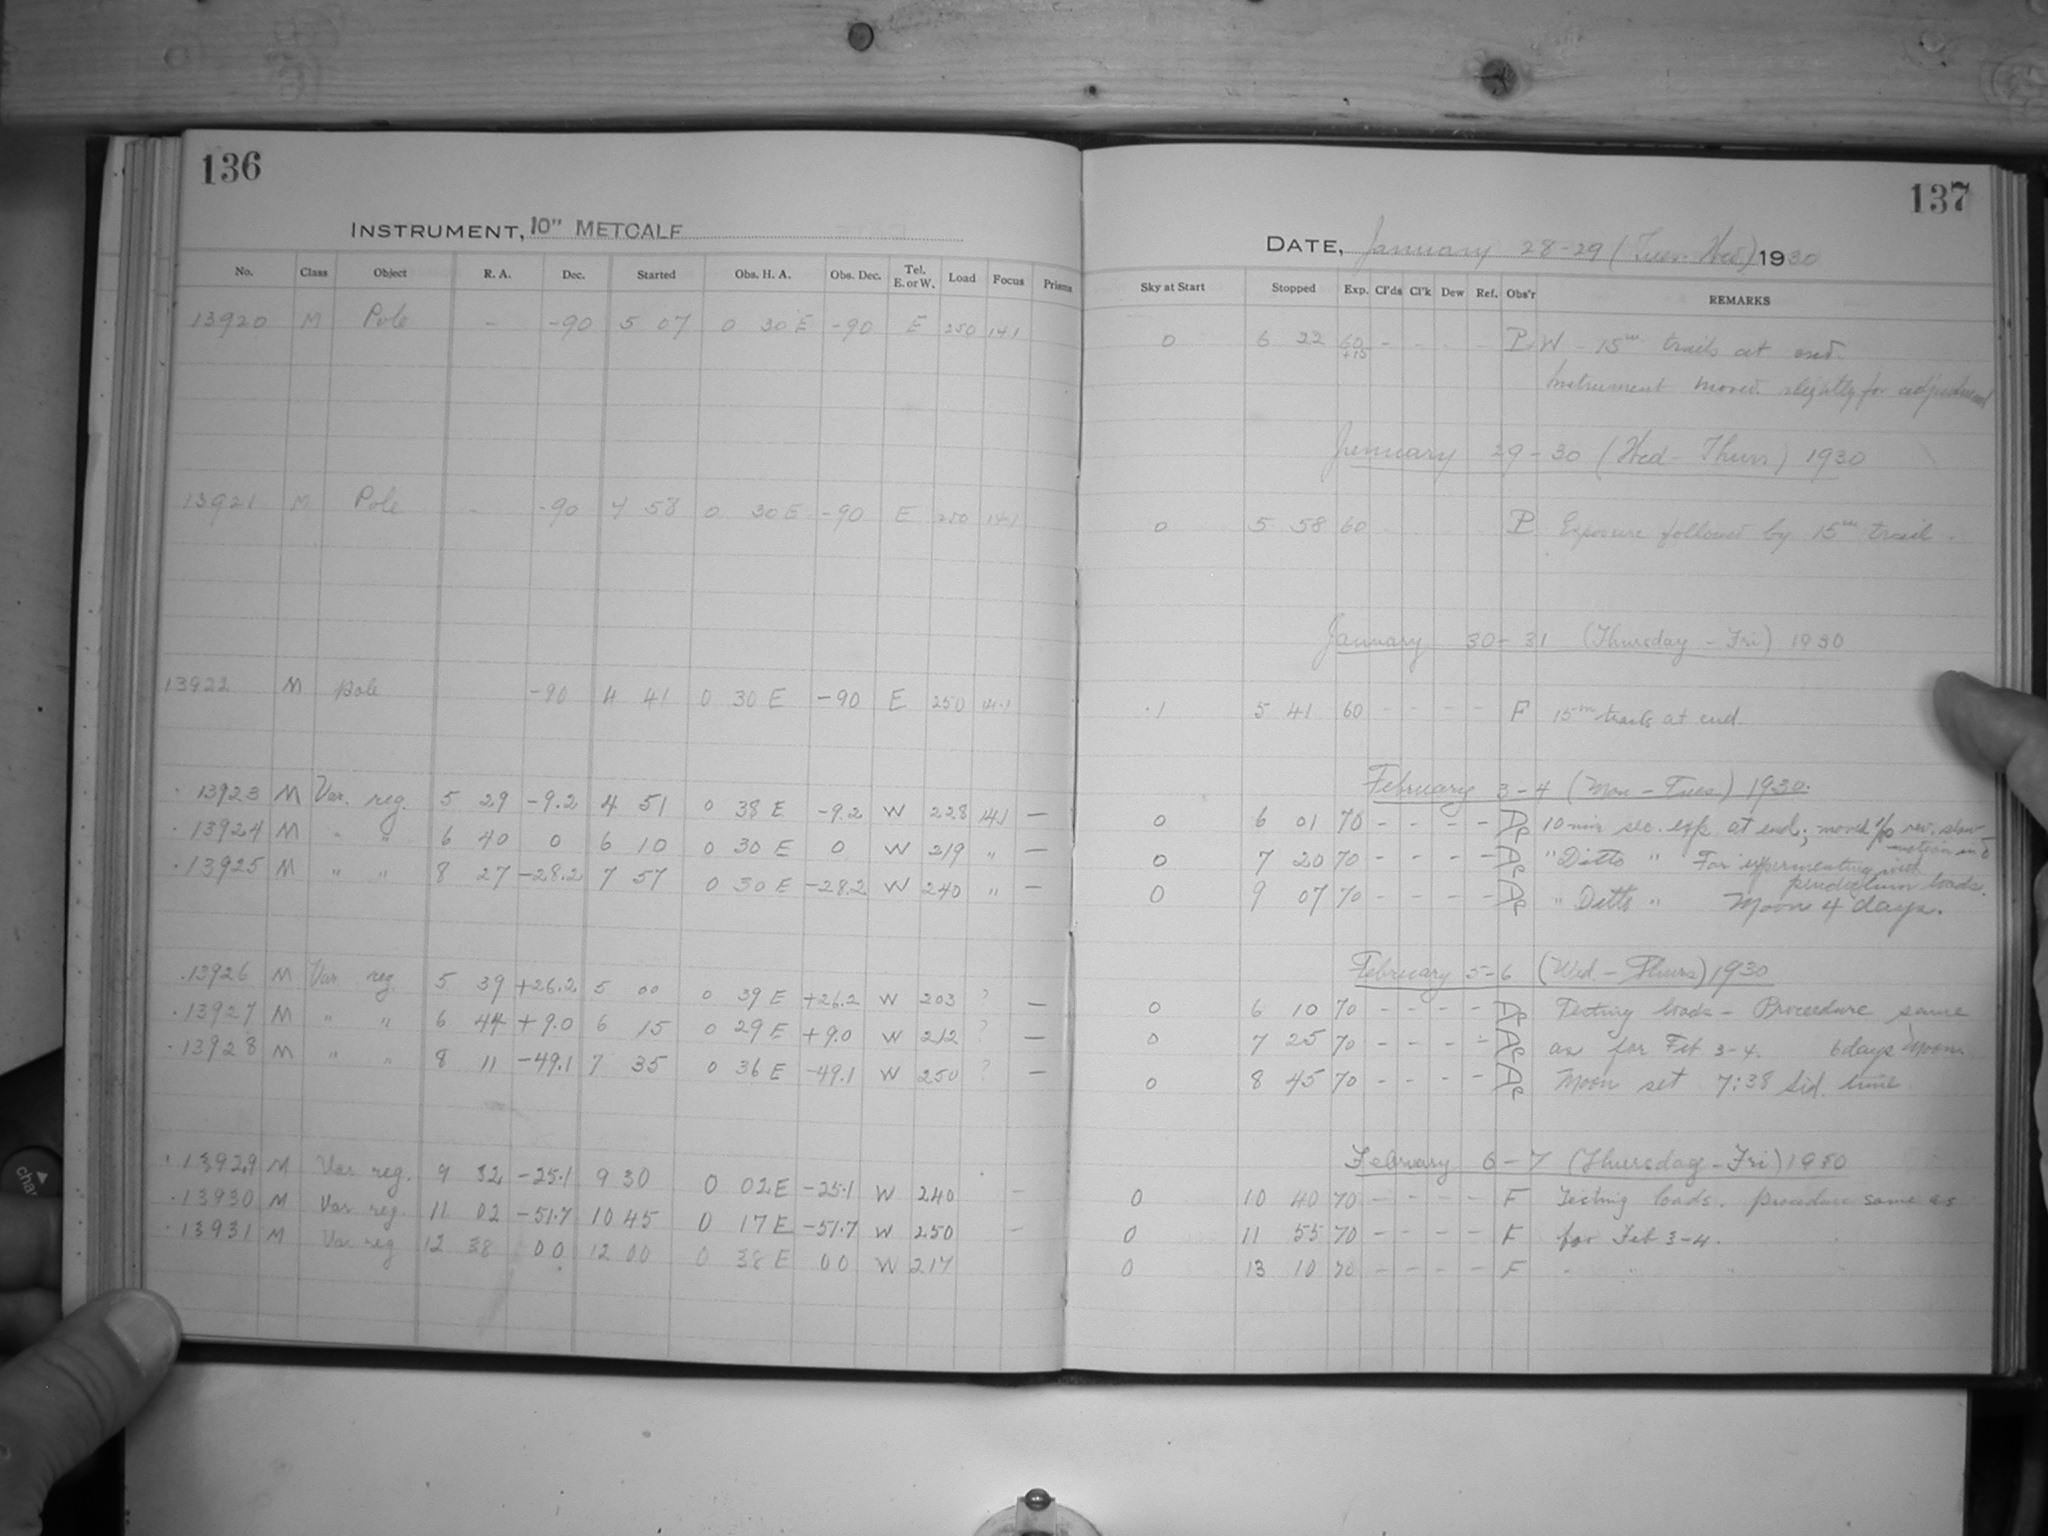 136
INSTRUMENT, 10" METCALF
No. Class Object R. A. Dec. Started Obs. H. A. Obs. Dec. Tel. E. or W. Load Focus Prisms
13920 M Pole - -90 5 07 0 30 E -90 E 250 14.1
13921 M Pole - -90 4 58 0 30 E -90 E 250 14.1
13922 M Pole -90 4 41 0 30 E -90 E 250 14.1
13923 M Var. reg. 5 29 -9.2 4 51 0 38 E -9.2 W 228 14.1 —
13924 M " " 6 40 0 6 10 0 30 E 0 W 219 " —
13925 M " " 8 27 -28.2 7 57 0 30 E -28.2 W 240 " —
13926 M Var. reg. 5 39 +26.2 5 00 0 39 E +26.2 W 203 ? —
13927 M " " 6 44 +9.0 6 15 0 29 E +9.0 W 212 ? —
13928 M " " 8 11 -49.1 7 35 0 36 E -49.1 W 250 ? —
13929 M Var reg. 9 32 -25.1 9 30 0 02 E -25.1 W 240 —
13930 M Var reg. 11 02 -51.7 10 45 0 17 E -51.7 W 250 —
13931 M Var reg 12 38 00 12 00 0 38 E 00 W 217
137
DATE, January 28-29 (Tues-Wed) 1930
Sky at Start Stopped Exp. Cl'ds Cl'k Dew Ref. Obs'r REMARKS
0 6 22 60 +15 - - - - P.W - 15m trails at end.
Instrument moved slightly for adjustment
January 29-30 (Wed-Thurs) 1930
0 5 58 60 P Exposure followed by 15m trail.
January 30-31 (Thursday-Fri) 1930
.1 5 41 60 - - - - F 15m trails at end.
February 3-4 (Mon-Tues) 1930.
0 6 01 70 - - - - 10 min sec. exp. at end; moved rev. slow motion in
0 7 20 70 - - - - " Ditto " For experimenting with pendulum loads.
0 9 07 70 - - - - " Ditto " Moon 4 days.
February 5-6 (Wed-Thurs) 1930
0 6 10 70 - - - - Testing loads - Procedure same
0 7 25 70 - - - - as for Feb 3-4. 6 days Moon
0 8 45 70 - - - - Moon set 7:38 Sid. time
February 6-7 (Thursday-Fri) 1930
0 10 40 70 - - - - F Testing loads. Procedure same as
0 11 55 70 - - - - F for Feb 3-4.
0 13 10 70 - - - - F " " "
char